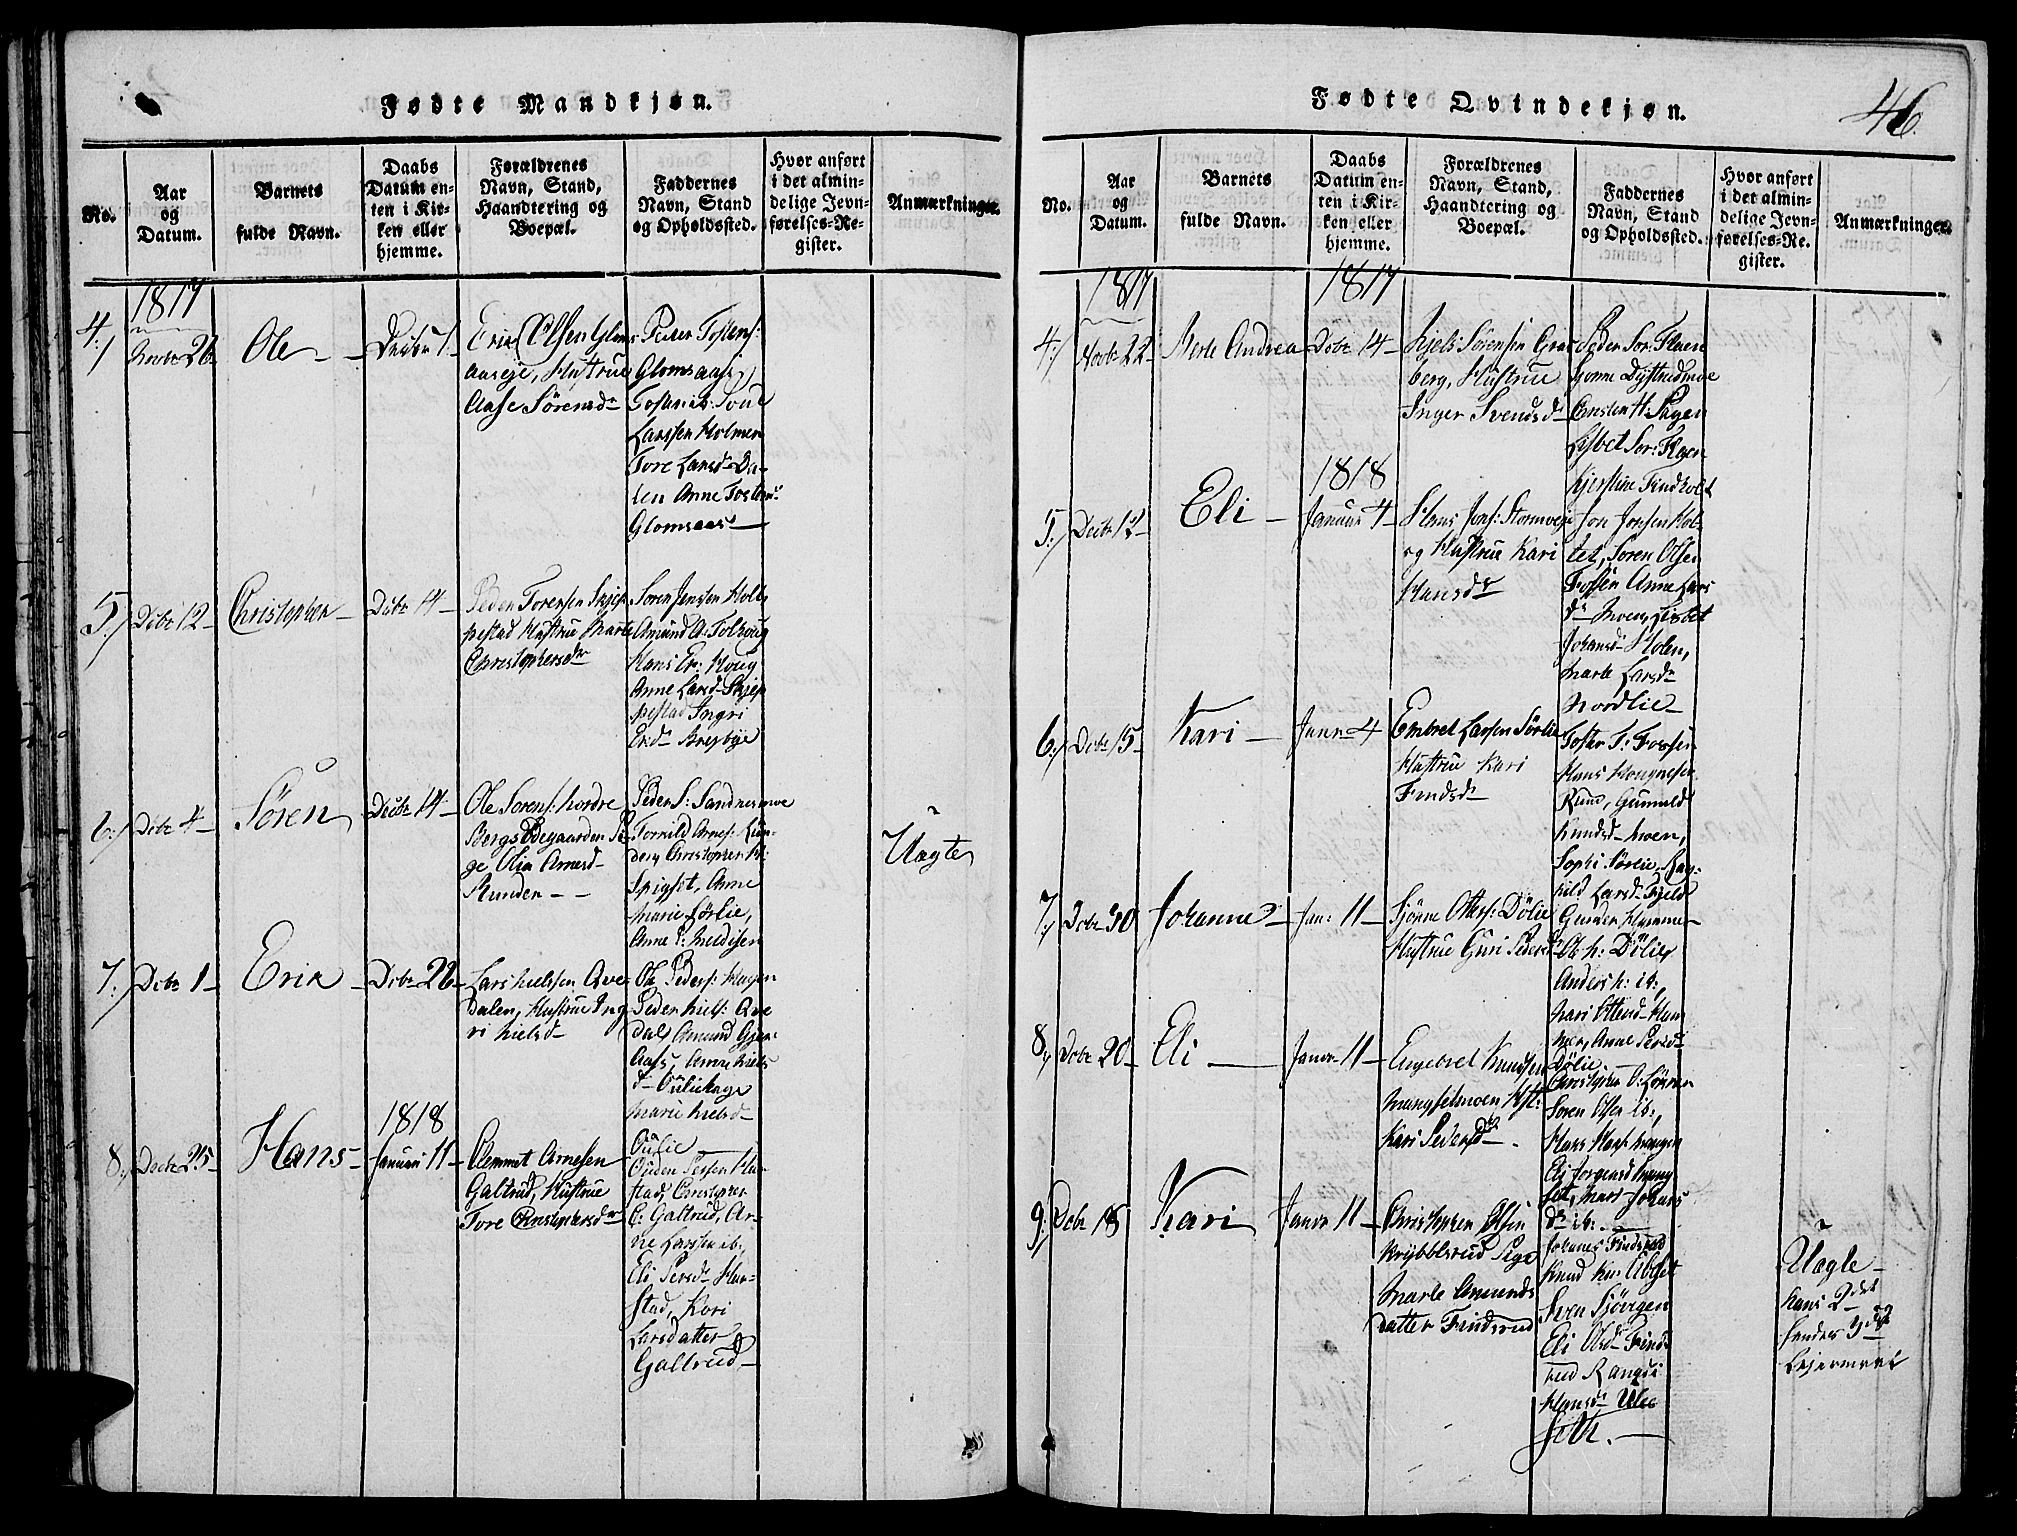 Fødte Mandkjøn.
No.
Aar
og
Datum.
Barnets
fulde Navn.
Daabs
Datum en-
ten i Kir-
ken eller
hjemme.
Forældrenes
Navn, Stand,
Haandtering og
Boepæl.
Faddernes
Navn, Stand
og Opholdssted.
Hvor anført
i det almin-
delige Jevn-
førelses-Re-
gister.
Anmærkninger.
1817
4.)
26
Ole
1
Erik Olsen Gloms
aaseje, Hustrue
Aase Sørensdr
Peder Tostens:
Glomsaas,
Tosten ib:
Larssen Holmen
Tore Larsdr Da-
len Anne Tostens
Glomsaas
5.)
Debr 12
Christopher
Debr 14
Peder Torensen Skjep
pestad Hustrue Marte
Christophersdr
Soren Jensen Holte
Amund A: Tolhoug
Hans Er: Houg
Anne Larsd Skjep
pestad Ingri
Ersdr
6.)
Debr 4
Sören
Decbr 14
Ole Sorens: Nordre
Bergs Ødegaarden Pi-
ge Olia Arnesd
Runden
Peder S: Sandnesmoe
Tornild Arnes: Lun-
deng Christopher H:
Spigset, Anne
Marie Sørlie,
Anne P: Meldisen
Uægte
7.)
Debr 1
Erik
Debr 26
Lars Nielssen Qve
dalen, Hustrue Ing
ri Nielsd
Ole Peders: Hagen
Peder Niels: Qve
dal, Amund Gjer
Aass, Anne Niels
d Ouliehage
Marie Nielsd
Oulie
1818
8.)
Decbr 25
Hans
Januari 11
Clemmet Arnesen
Galtrud, Hustrue
Tore Christophersdr
Ouden Persen Har
stad, Christopher
C: Galtrud, Ar-
ne Larssen ib:,
Eli Persdr Har-
stad, Kari
Larsdatter
Galtrud
Fødte Qvindekjøn.
46
No.
Aar
og
Datum.
Barnets
fulde Navn.
Daabs
Datum en-
ten i Kir-
ken eller
hjemme.
Forældrenes
Navn, Stand,
Haandtering og
Boepæl.
Faddernes
Navn, Stand
og Opholdssted.
Hvor anført
i det almin-
delige Jevn-
førelses-Re-
gister.
Anmærkninger.
1817
1817
4.)
Novbr 22
Berte Andrea
Debr 14
Njels Sörensen Gras
berg, Hustrue
Inger Svendsdr
Peder Sor:
Christen H: Hagen
Lisbet Sor:
1818
5.)
Decbr 12
Eli
Januar 4
Hans Jons: Stormoeje
og Hustrue Kari
Hansdr
Jon Jonsen Hol-
tet, Soren Olsen
Fossen Anne Lars
dr Moen, Lisbet
Johansd Holen,
Marte Larsdr
Nordlie
6.)
Debr 15
Kari
Janr 4
Embret Larsen Sörlie
Hustrue Kari
Findsdr
Hans
Rund, Gunnild
Knudsd Moen,
Sophi Sörlie, Rag-
nild Larsd Fjeld
7.)
Debr 30
Johanne
Jan: 11
Sjönne Otters: Dölie
Hustrue Guri Pedersdr
Gunder Hammer
Ole H: Dölie,
Anders H: ib:,
Mari Ottersd Ham
mer, Anne Persd
Dölie
8.)
Debr 20
Eli
Janr 11
Engebret Knudsen
Mangsetmoen Hust:
Kari Pedersdr
Christopher O:
Soren Olsen ib:,
Hans
Eli Jorgensd Mang
set, Mari Johans
dr ib:
9.)
Debr 18
Kari
Janr 11
Christopher Olsen
Krybbelsrud Pige
Marte Amunds
datter Findsrud
Johanes Findsrud
Knud Kn: Ulset
Eli Olsd Finds
rud Rangdi
Hansdr Ulse
Seth.
Uægte
hans 2det
hendes 3die
Lejermaal